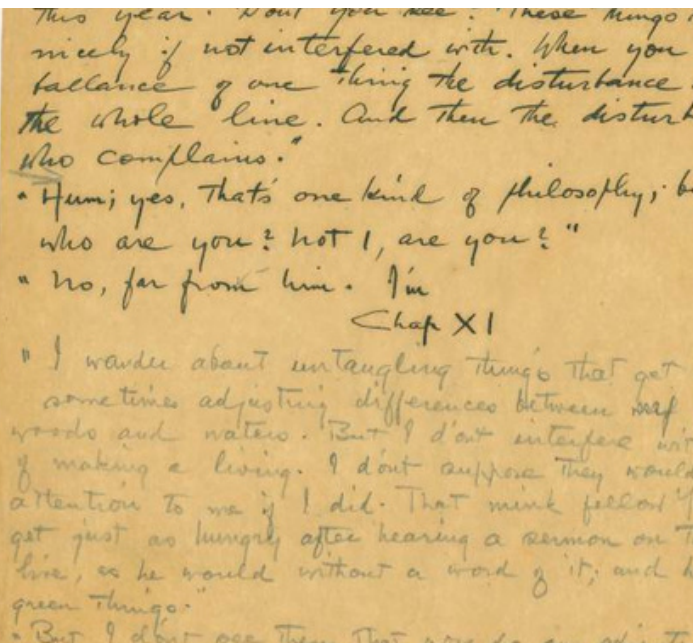 this year. Don't you see? These things
nicely if not interfered with. When you
ballance of one thing the disturbance
the whole line. And then the disturb
who complains."
"Hum; yes, that's one kind of philosophy; b
who are you? not I, are you?"
"No, far from him. I'm
Chap XI
"I wander about untangling things that get
sometimes adjusting differences between
woods and waters. But I don't interfere wit
of making a living. I don't suppose they would
attention to me if I did. That mink fellow
get just as hungry after hearing a sermon on
live, as he would without a word of it; and
green things."
"But I don't see them that